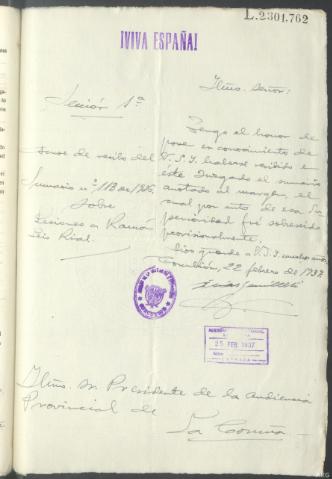 L.2301.762
¡VIVA ESPAÑA!
Iltmo. Señor:
Sección 1ª
Tengo el honor de
poner en conocimiento de
Acuse de recibo del
V.S.I. haberse recibido en
este Juzgado el sumario
Sumario nº 113 de 1936
anotado al margen, el
sobre
cual por auto de esa Su
Lesiones a Ramón
perioridad fué sobreseido
Leis Rial.
provisionalmente.
Dios guarde a V.S.I. muchos años
Corcubión, 22 febrero de 1937
25 FEB 1937
Iltmo. Sr. Presidente de la Audiencia
Provincial de
La Coruña